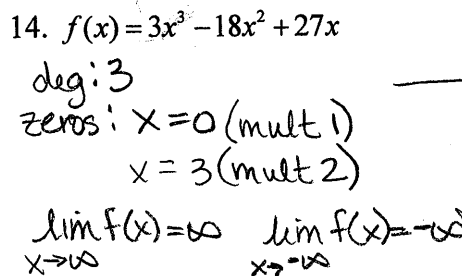 14. f(x) = 3x³ − 18x² + 27x
deg: 3
zeros: x = 0 (mult 1)
x = 3 (mult 2)
lim f(x) = ∞ lim f(x) = -∞
x→∞ x→-∞